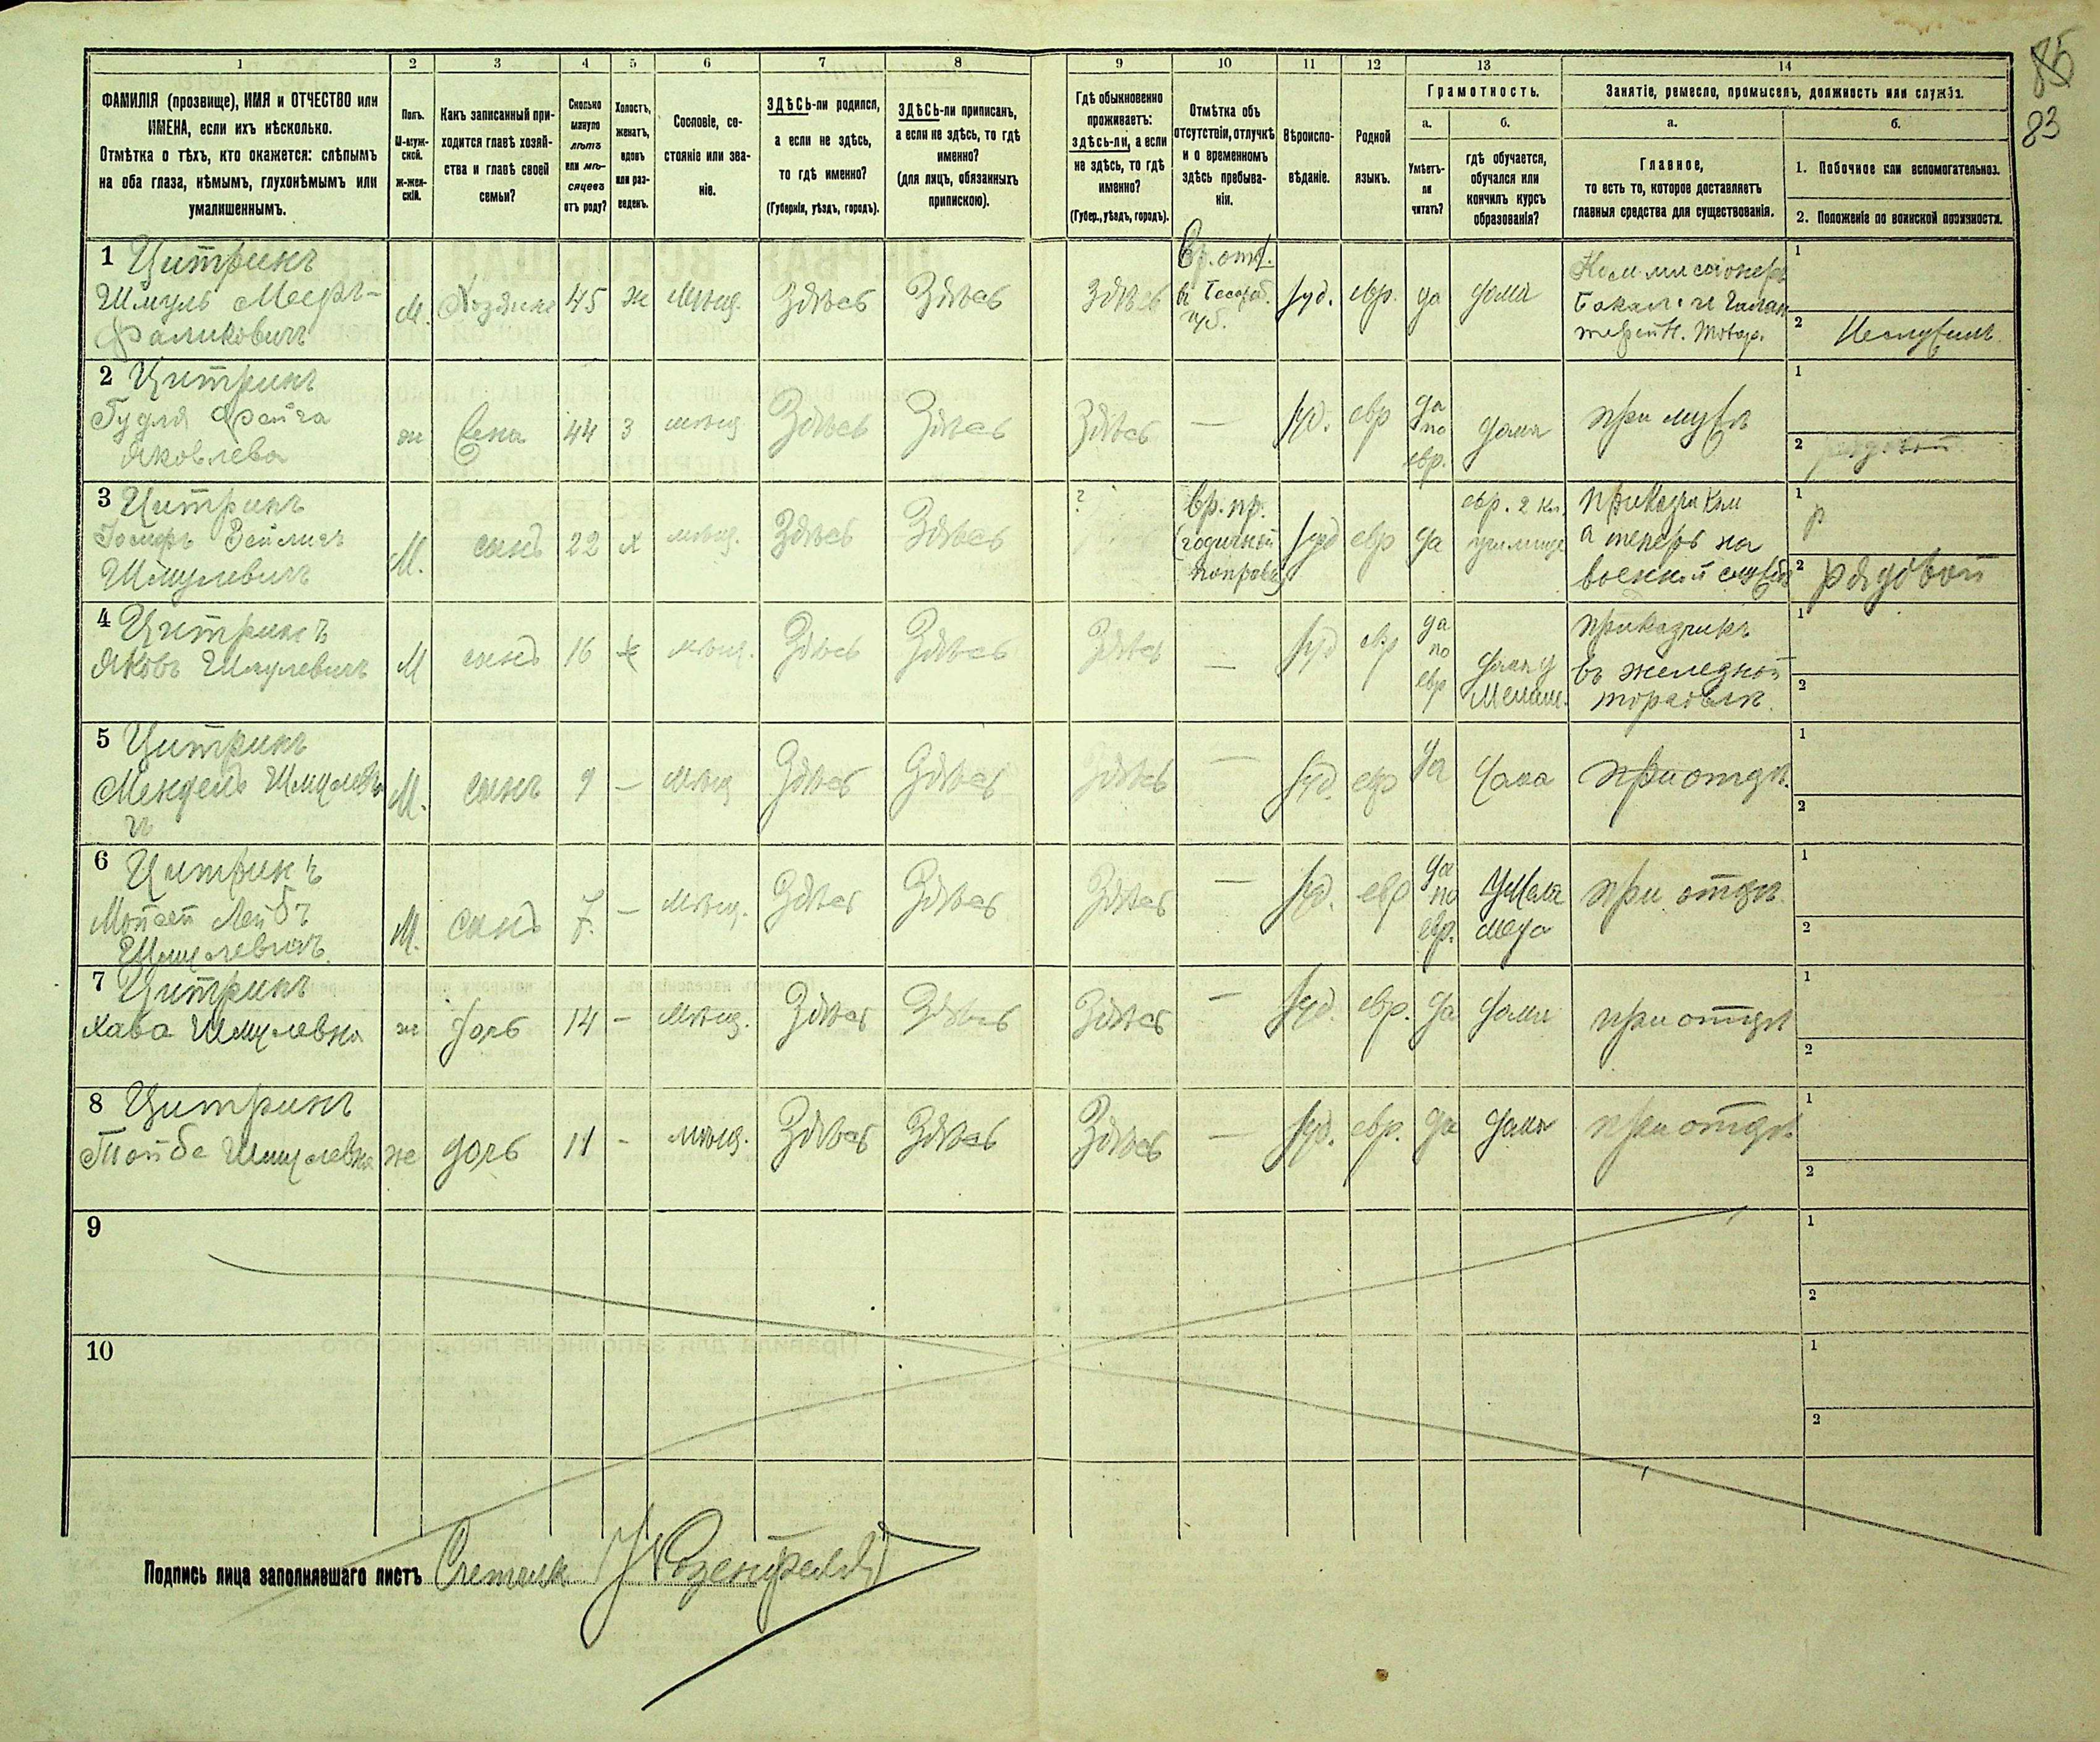 85
83
1 2 3 4 5 6 7 8 9 10 11 12 13 14
ФАМИЛІЯ (прозвище), ИМЯ и ОТЧЕСТВО или
ИМЕНА, если ихъ нѣсколько.
Отмѣтка о тѣхъ, кто окажется: слѣпымъ
на оба глаза, нѣмымъ, глухонѣмымъ или
умалишеннымъ.
Полъ.
М-муж-
ской.
ж-жен-
скій.
Какъ записанный при-
ходится главѣ хозяй-
ства и главѣ своей
семьи?
Сколько
минуло
лѣтъ
или мѣ-
сяцевъ
отъ роду?
Холостъ,
женатъ,
вдовъ
или раз-
веденъ.
Сословіе, со-
стояніе или зва-
ніе.
ЗДѢСЬ-ли родился,
а если не здѣсь,
то гдѣ именно?
(Губернія, уѣздъ, городъ).
ЗДѢСЬ-ли приписанъ,
а если не здѣсь, то гдѣ
именно?
(для лицъ, обязанныхъ
припискою).
Гдѣ обыкновенно
проживаетъ:
здѣсь-ли, а если
не здѣсь, то гдѣ
именно?
(Губер., уѣздъ, городъ).
Отмѣтка объ
отсутствіи, отлучкѣ
и о временномъ
здѣсь пребыва-
ніи.
Вѣроиспо-
вѣданіе.
Родной
языкъ.
Грамотность.
а.
Умѣетъ-
ли
читать?
б.
гдѣ обучается,
обучался или
кончилъ курсъ
образованія?
Занятіе, ремесло, промыселъ, должность или служба.
а.
Главное,
то есть то, которое доставляетъ
главныя средства для существованія.
б.
1. Побочное или вспомогательное.
2. Положеніе по воинской повинности.
1 Цитринъ
Шмуль Мееръ-
Фаликовичъ
М. Хозяинъ 45 ж мѣщ. Здѣсь Здѣсь Здѣсь
Вр. отл.
въ Бессараб.
губ.
Іуд. евр. да дома
Коммисіонеръ
Бакал. и Галан
терейн. Товар.
1
2 Неслужилъ
2 Цитринъ
Гудля Фейга
Яковлева
ж Жена 44 З мѣщ Здѣсь Здѣсь Здѣсь — Іуд. евр
да
по
евр.
дома при мужѣ
1
2 рядовой
3 Цитринъ
Зейликъ
Шмулевичъ
М. сынъ 22 х мѣщ. Здѣсь Здѣсь ?
вр. пр.
(годичной
поправки)
Іуд евр да
евр. 2 кл.
училище
Приказчикъ
а теперь на
военной службѣ
1 р
2 рядовой
4 Цитринъ
Яковъ Шмулевичъ
М сынъ 16 х мѣщ. Здѣсь Здѣсь Здѣсь — Іуд евр
да
по
евр
дома у
Мелам.
приказчикъ
въ железной
торговлѣ.
1
2
5 Цитринъ
Мендель Шмулеви
чъ
М. сынъ 9 — мѣщ Здѣсь Здѣсь Здѣсь — Іуд. евр да дома при отцѣ.
1
2
6 Цитринъ
Мойсей Лейбъ
Шмулевичъ.
М. сынъ 7. — мѣщ. Здѣсь Здѣсь Здѣсь — Іуд. евр
да
по
евр.
у Мела
меда
при отцѣ.
1
2
7 Цитринъ
Хава Шмулевна
ж дочь 14 — мѣщ. Здѣсь Здѣсь Здѣсь — Іуд. евр. да дома при отцѣ
1
2
8 Цитринъ
Тойба Шмулевна
же дочь 11 - мѣщ. Здѣсь Здѣсь Здѣсь — Іуд. евр. да дома при отцѣ
1
2
9
1
2
10
1
2
Подпись лица заполнявшаго листъ Счетчик Розенфельд